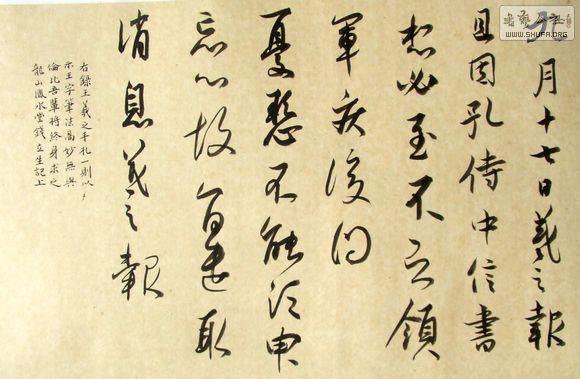 九月十七日羲之報
且因孔侍中信書
想必至不知領
軍疾後問
憂懸不能須臾
忘心故旨遣取
消息羲之報
右錄王羲之手札一則以
示王字筆法高妙無與
倫比吾輩將終身求之
龍山水堂錢立生記上
WWW.SHUFA.ORG